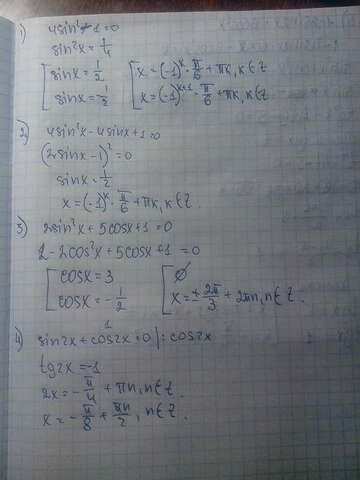 1) 4sin²x-1=0
sin²x=1/4
[ sinx=1/2 [ x=(-1)^k·π/6+πk, k∈Z
[ sinx=-1/2 [ x=(-1)^(k+1)·π/6+πk, k∈Z
2) 4sin²x-4sinx+1=0
(2sinx-1)²=0
sinx=1/2
x=(-1)^k·π/6+πk, k∈Z.
3) 2sin²x+5cosx+1=0
2-2cos²x+5cosx+1=0
[ cosx=3 [ ∅
[ cosx=-1/2 [ x=±2π/3+2πn, n∈Z.
4) sin2x+cos2x=0 |:cos2x
tg2x=-1
2x=-π/4+πn, n∈Z.
x=-π/8+πn/2, n∈Z.